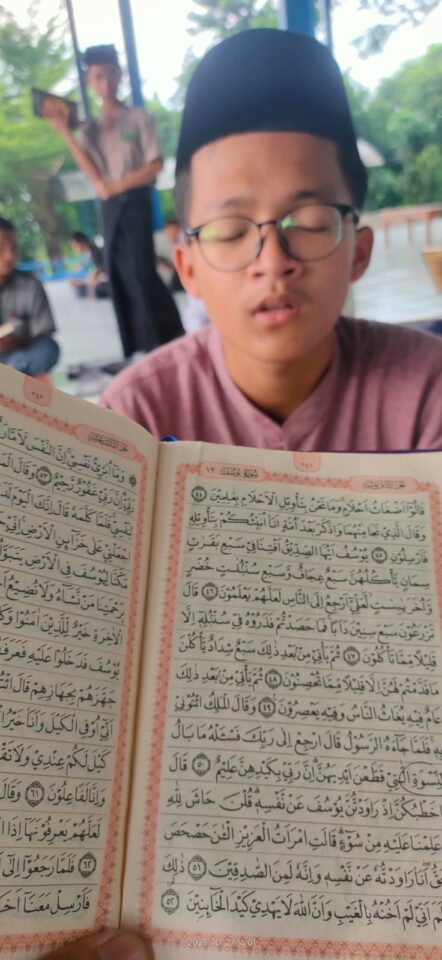 ٢٤١
سورة يوسف ١٢
قَالُوْٓا اَضْغَاثُ اَحْلَامٍ ۚوَمَا نَحْنُ بِتَأْوِيْلِ الْاَحْلَامِ بِعٰلِمِيْنَ ٤٤
وَقَالَ الَّذِيْ نَجَا مِنْهُمَا وَادَّكَرَ بَعْدَ اُمَّةٍ اَنَا۠ اُنَبِّئُكُمْ بِتَأْوِيْلِهٖ
فَاَرْسِلُوْنِ ٤٥ يُوْسُفُ اَيُّهَا الصِّدِّيْقُ اَفْتِنَا فِيْ سَبْعِ بَقَرٰتٍ
سِمَانٍ يَّأْكُلُهُنَّ سَبْعٌ عِجَافٌ وَّسَبْعِ سُنْۢبُلٰتٍ خُضْرٍ
وَّاُخَرَ يٰبِسٰتٍۙ لَّعَلِّيْٓ اَرْجِعُ اِلَى النَّاسِ لَعَلَّهُمْ يَعْلَمُوْنَ ٤٦ قَالَ
تَزْرَعُوْنَ سَبْعَ سِنِيْنَ دَاَبًاۚ فَمَا حَصَدْتُّمْ فَذَرُوْهُ فِيْ سُنْۢبُلِهٖٓ اِلَّا
قَلِيْلًا مِّمَّا تَأْكُلُوْنَ ٤٧ ثُمَّ يَأْتِيْ مِنْۢ بَعْدِ ذٰلِكَ سَبْعٌ شِدَادٌ يَّأْكُلْنَ
مَا قَدَّمْتُمْ لَهُنَّ اِلَّا قَلِيْلًا مِّمَّا تُحْصِنُوْنَ ٤٨ ثُمَّ يَأْتِيْ مِنْۢ بَعْدِ ذٰلِكَ
عَامٌ فِيْهِ يُغَاثُ النَّاسُ وَفِيْهِ يَعْصِرُوْنَ ٤٩ وَقَالَ الْمَلِكُ ائْتُوْنِيْ
بِهٖۚ فَلَمَّا جَاۤءَهُ الرَّسُوْلُ قَالَ ارْجِعْ اِلٰى رَبِّكَ فَسْـَٔلْهُ مَا بَالُ
النِّسْوَةِ الّٰتِيْ قَطَّعْنَ اَيْدِيَهُنَّۗ اِنَّ رَبِّيْ بِكَيْدِهِنَّ عَلِيْمٌ ٥٠ قَالَ
خَطْبُكُنَّ اِذْ رَاوَدْتُّنَّ يُوْسُفَ عَنْ نَّفْسِهٖۗ قُلْنَ حَاشَ لِلّٰهِ
عَلِمْنَا عَلَيْهِ مِنْ سُوْۤءٍۗ قَالَتِ امْرَاَتُ الْعَزِيْزِ الْـٰٔنَ حَصْحَصَ
اَنَا۠ رَاوَدْتُّهٗ عَنْ نَّفْسِهٖ وَاِنَّهٗ لَمِنَ الصّٰدِقِيْنَ ٥١ ذٰلِكَ
اَنِّيْ لَمْ اَخُنْهُ بِالْغَيْبِ وَاَنَّ اللّٰهَ لَا يَهْدِيْ كَيْدَ الْخَاۤىِٕنِيْنَ ٥٢
٢٤٢
وَمَآ اُبَرِّئُ نَفْسِيْۚ اِنَّ النَّفْسَ لَاَمَّارَةٌ
رَبِّيْۗ اِنَّ رَبِّيْ غَفُوْرٌ رَّحِيْمٌ ٥٣ وَقَالَ
لِنَفْسِيْۚ فَلَمَّا كَلَّمَهٗ قَالَ اِنَّكَ الْيَوْمَ
اجْعَلْنِيْ عَلٰى خَزَاۤىِٕنِ الْاَرْضِۚ اِنِّيْ
مَكَّنَّا لِيُوْسُفَ فِى الْاَرْضِۚ يَتَبَوَّاُ
بِرَحْمَتِنَا مَنْ نَّشَاۤءُ وَلَا نُضِيْعُ
الْاٰخِرَةِ خَيْرٌ لِّلَّذِيْنَ اٰمَنُوْا
يُوْسُفَ فَدَخَلُوْا عَلَيْهِ فَعَرَفَهُمْ
جَهَّزَهُمْ بِجَهَازِهِمْ قَالَ
اَنِّيْٓ اُوْفِى الْكَيْلَ وَاَنَا۠ خَيْرُ
كَيْلَ لَكُمْ عِنْدِيْ وَلَا
وَاِنَّا لَفَاعِلُوْنَ ٦١ وَقَالَ
لَعَلَّهُمْ يَعْرِفُوْنَهَآ اِذَا
٦٢ فَلَمَّا رَجَعُوْٓا اِلٰٓى
فَاَرْسِلْ مَعَنَآ
2025-10-27 14:01